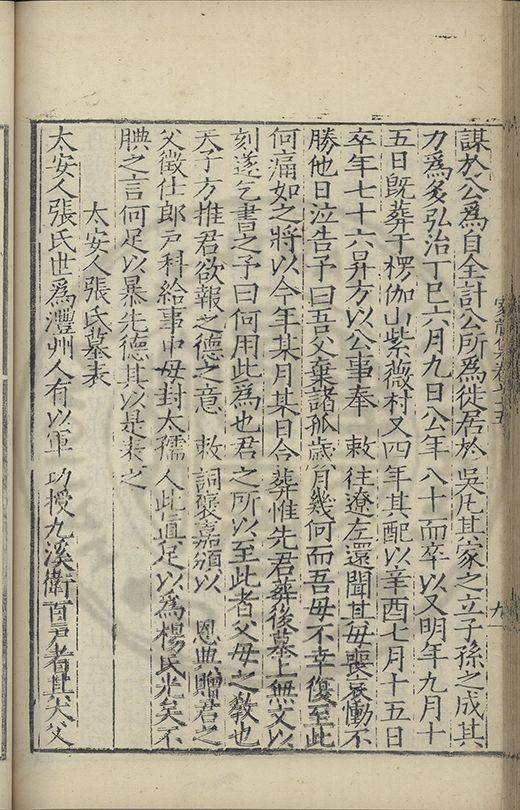 謀於公為自全計公所為徙居於吳凡其家之立子孫之成其
力為多弘治丁巳六月九日公年八十而卒以又明年九月十
五日旣葬于楞伽山紫薇村又四年其配以辛酉七月十五日
卒年七十六昇方以公事奉敕往遼左還聞其母喪哀慟不
勝他日泣告予曰吾父棄諸孤歲月幾何而吾母不幸復至此
何痛如之將以今年某月某日合葬惟先君葬後墓上無文以
刻遂乞書之予曰何用此為也君之所以至此者父母之教也
天子方推君欲報之德之意敕詞褒嘉頒以恩典贈君之
父徵仕郎戶科給事中母封太孺人此真足以為楊氏光矣不
腆之言何足以暴先德其以是表之
太安人張氏墓表
太安人張氏世為澧州人有以軍功授九溪衛百戶者其大父
家藏集卷七十五
九